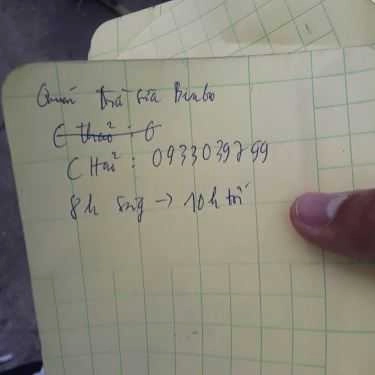 Quán Trà sữa Bimbo
C Thảo : 0
C Hảo : 0933039799
8h sáng → 10h tối